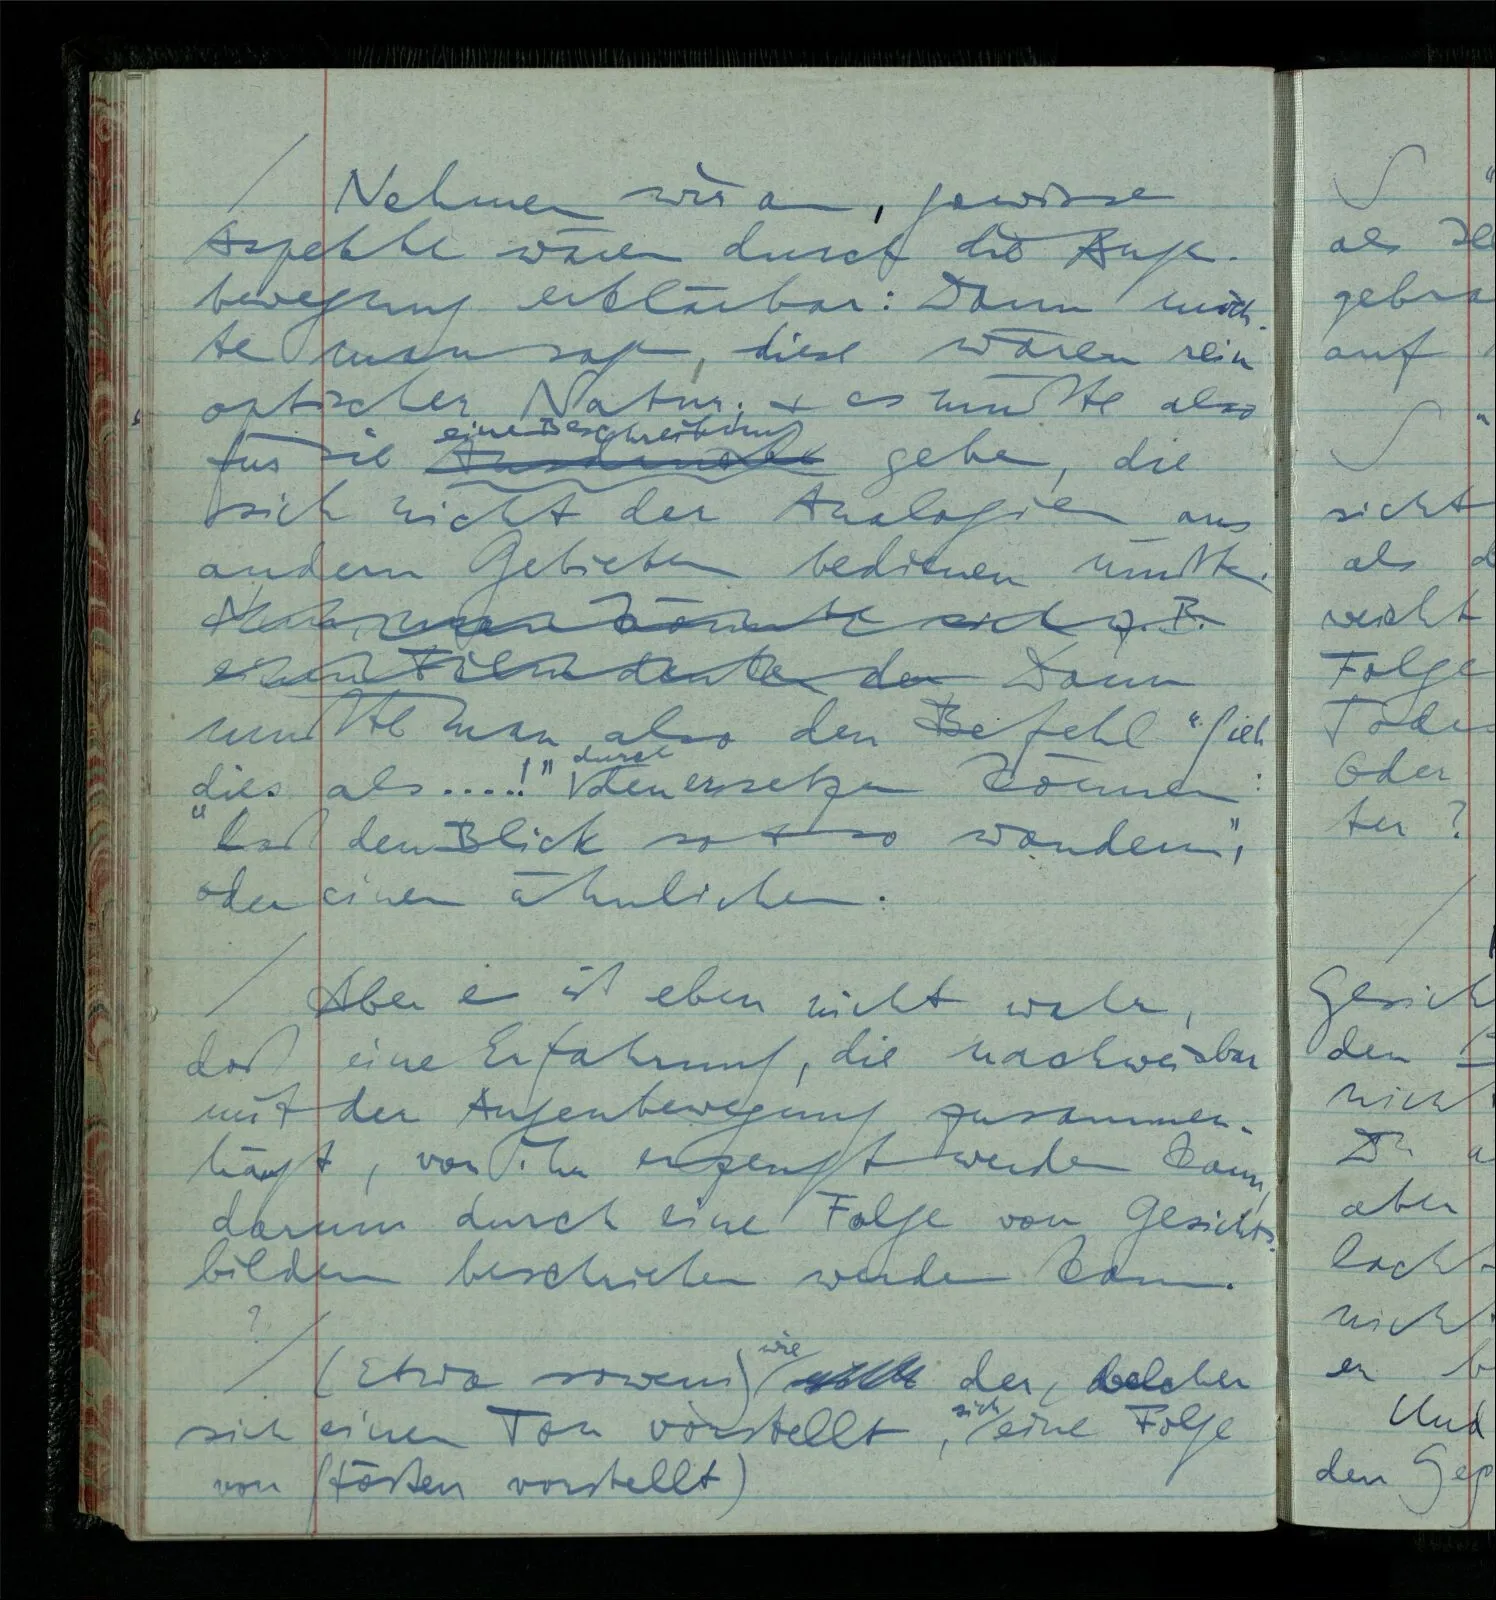 / Nehmen wir an, gewisse
Aspekte wären durch die Auge¬
bewegung erklärbar: Dann möch¬
te man sagen, diese wären rein
optischer Natur; + es müßte also
eine Beschreibung
für sie Ausdrücke geben, die
sich nicht der Analogien aus
andern Gebieten bedienen müßte.
man könnte sich z.B.
einen Film denken der Dann
müßte man also den Befehl “Sieh
durch
dies als ....!” den ersetzen können:
“Laß den Blick so + so wandern”,
oder einen ähnlichen.
/ Aber es ist eben nicht wahr,
daß eine Erfahrung, die nachweisbar
mit der Augenbewegung zusammen¬
hängt, von ihr erzeugt werden kann,
darum durch eine Folge von Gesichts¬
bildern beschrieben werden kann.
?
wie
/ (Etwa sowenig) der, welcher
sich
sich einen Ton vorstellt, eine Folge
von Stößen vorstellt)
S “
als
gebra
auf
S “
sicht
als d
reicht
Folge
Oder
ter?
/
Gesich
den B
nich
Du a
aber
lach
nich
er b
Und
den